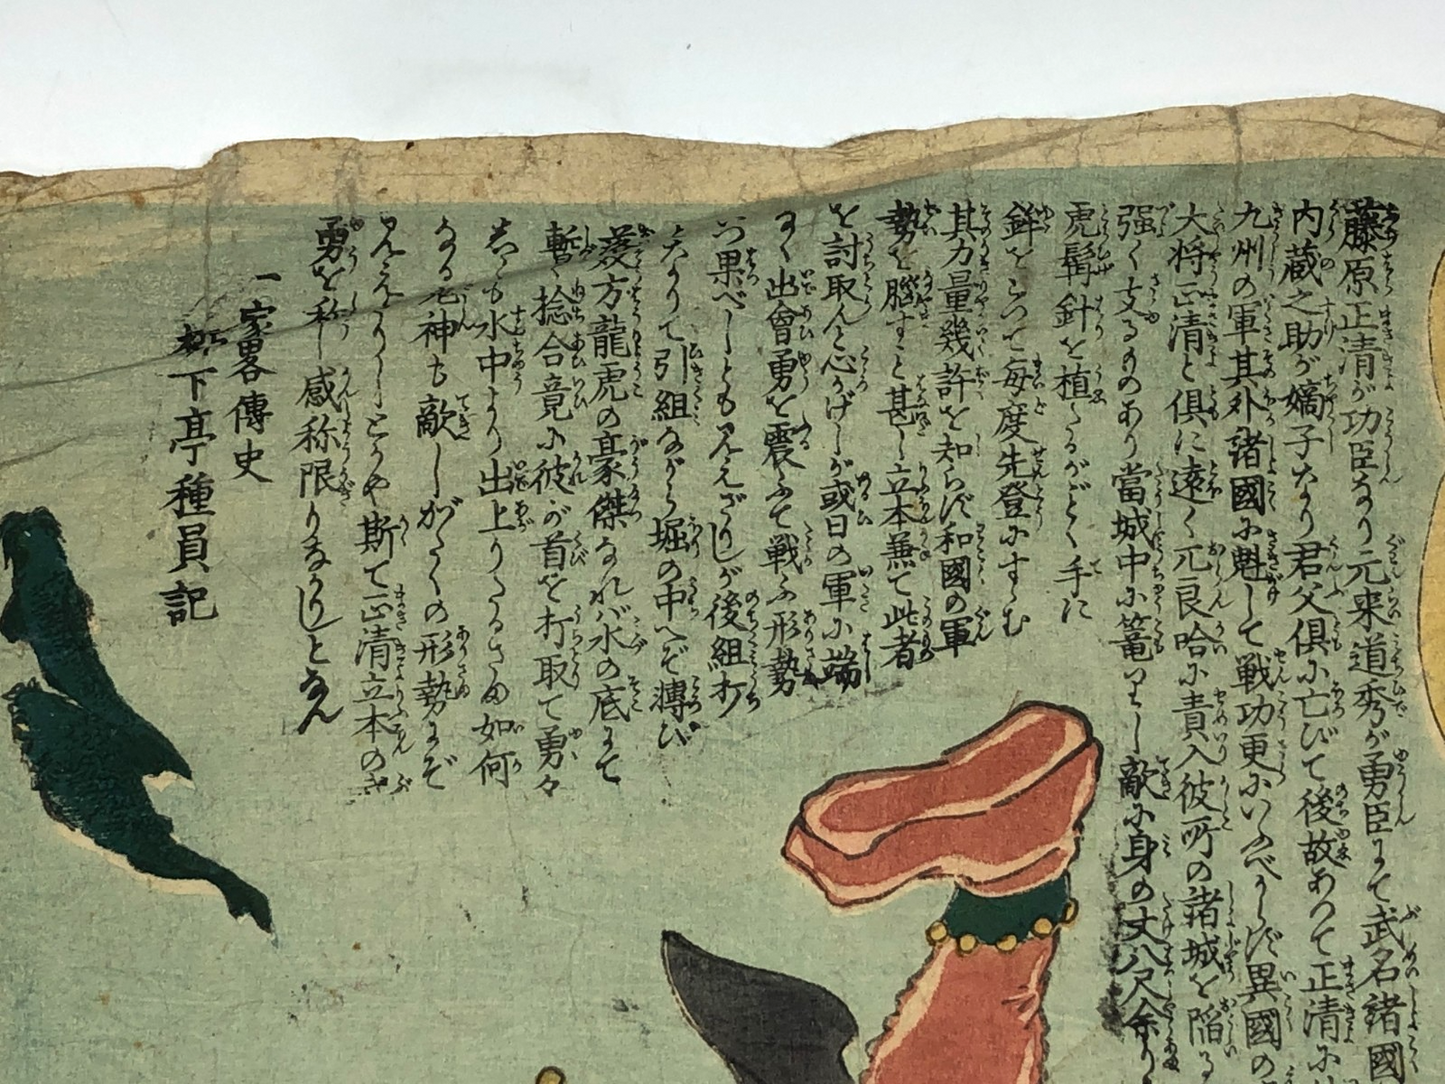 藤原正清が功臣なり元来道秀が勇臣にて武名諸國
内蔵之助が嫡子なり君父倶に亡びて後故あつて正清に
九州の軍其外諸國に魁して戦功更にいふべからず異國の
大将正清と倶に遠く兀良哈に責入彼所の諸城を陥る
强く支るものあり當城中に篭りし敵に身の丈八尺余り
虎髯針を植たるがごとく手に
鉾をもつて毎度先登にすゝむ
其力量幾許を知らず和國の軍
勢を腦すこと甚し立本兼て此者
を討取んと心がけしが或日の軍に端
なく出會勇を震ふて戦ふ形勢
いつ果べしとも見えざりしが後組打
となりて引組ながら堀の中へぞ轉び
落双方龍虎の豪傑なれバ水の底にて
暫し捻合竟に彼が首を打取て勇々
しくも水中より出上りたるさま如何
なる鬼神も敵しがたくの形勢にぞ
見えたりしとかや斯て正清立本のぶ
勇を称し感称限りなかりしとなん
一家畧傳史
柳下亭種員記